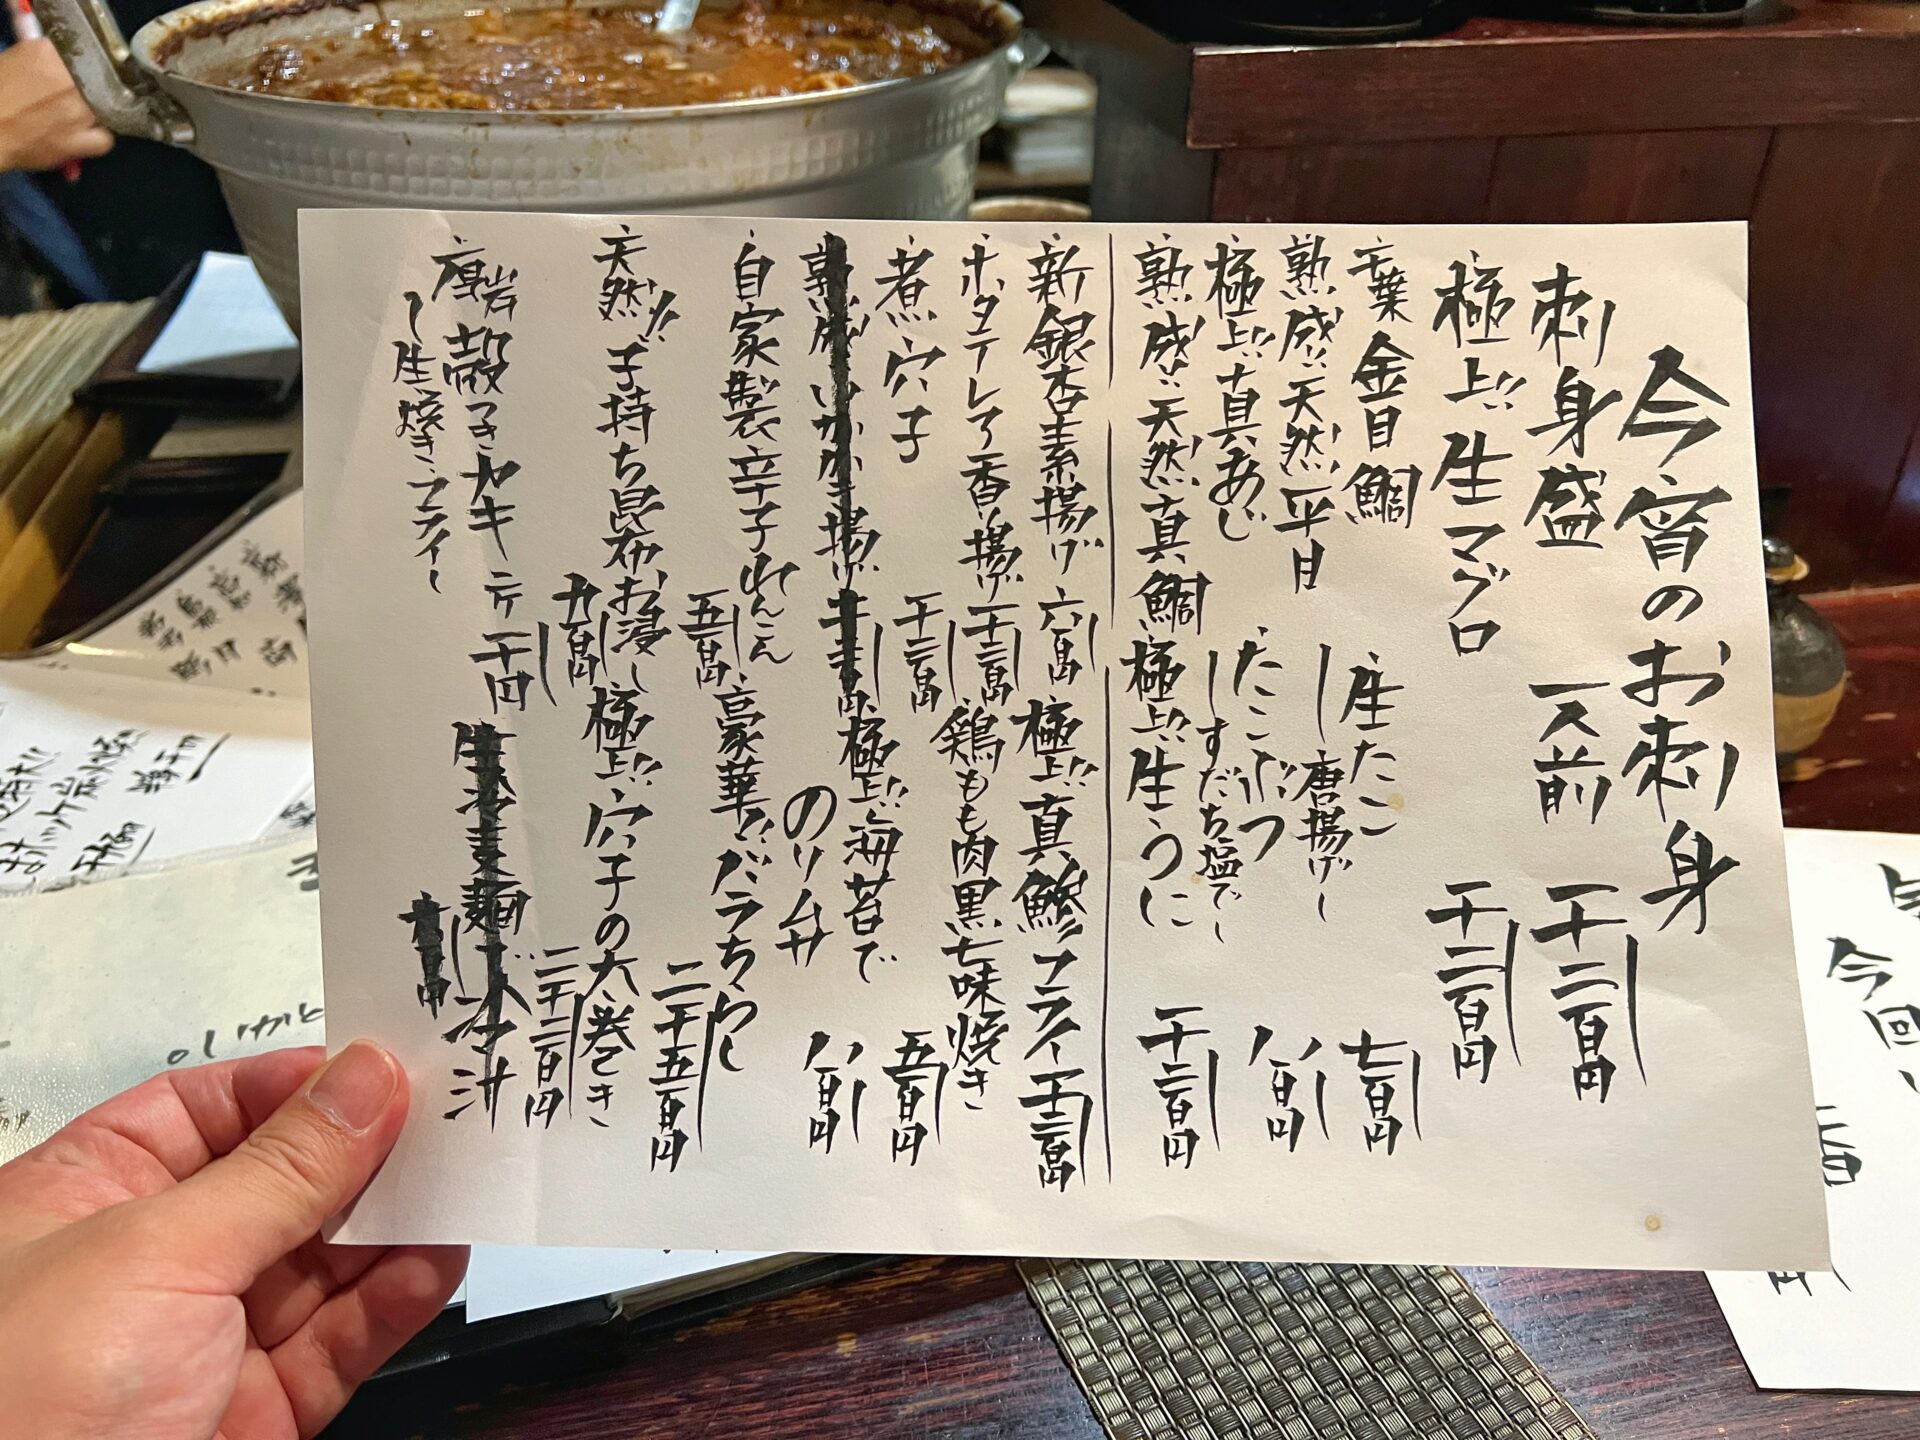 今宵のお刺身
刺身盛 一人前 千二百円
極上!!生マグロ 千二百円
千葉金目鯛
熟成!!天然平目
極上!!真あじ
熟成!!天然真鯛
生たこ 七百円
(唐揚げ)
たこぶつ 八百円
(すだち塩で)
極上!!生うに 千二百円
新銀杏素揚げ 六百円
ホタテレア香り揚げ 千二百円
煮穴子 千二百円
熟成いかかき揚げ
自家製辛子れんこん 五百円
天然!!子持ち昆布お浸し 九百円
厚岩殻つきカキ 二ケ 千円
(生・焼き・フライ)
極上!!真鯵フライ 千二百円
鶏もも肉黒七味焼き 五百円
極上!!海苔で
のり弁 八百円
豪華!!バラちらし 二千五百円
極上!!穴子の大巻き 二千二百円
今回